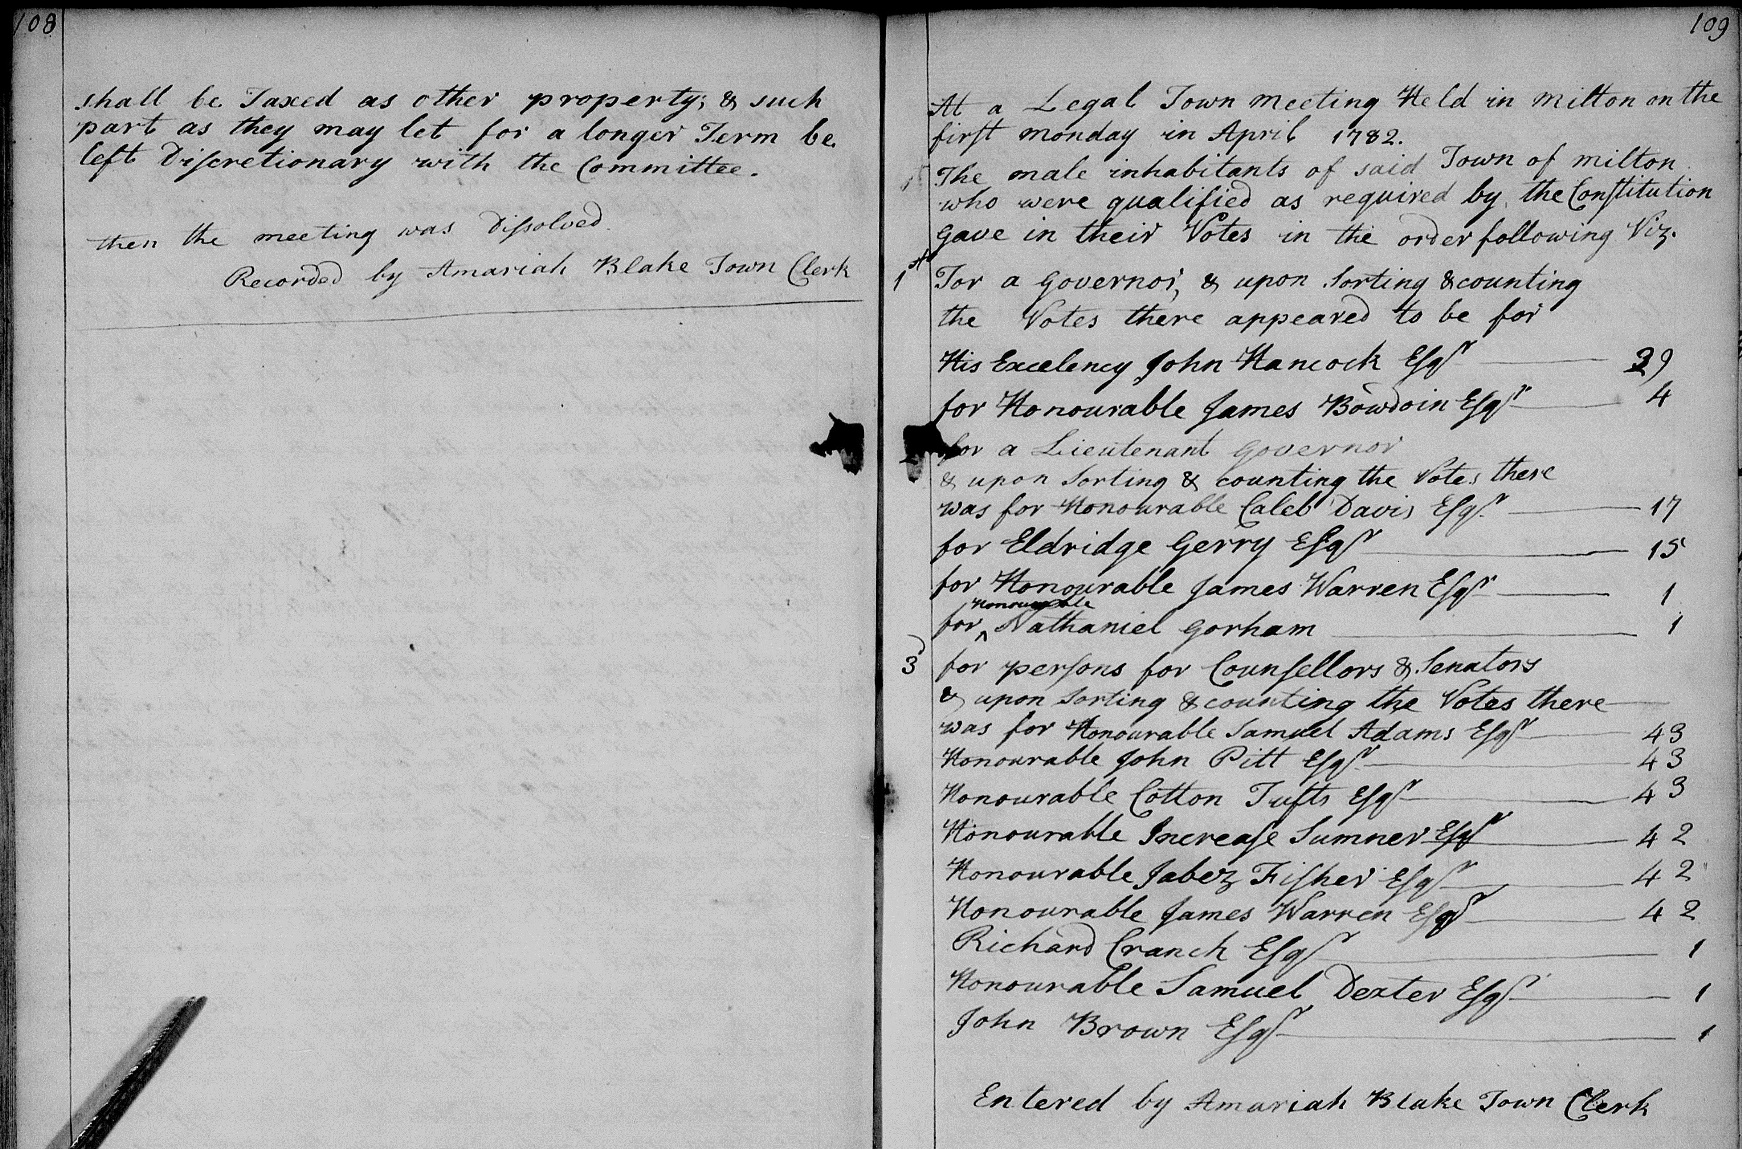 108
shall be Taxed as other property; & such
part as they may let for a longer Term be
left Discretionary with the Committee.
then the meeting was Dissolved.
Recorded by Amariah Blake Town Clerk
109
At a Legal Town meeting Held in Milton on the
first monday in April 1782.
The male inhabitants of said Town of milton
who were qualified as required by the Constitution
Gave in their Votes in the order following Viz.
1st For a Governor, & upon Sorting & counting
the Votes there appeared to be for
His Excelency John Hancock Esqr 39
for Honourable James Bowdoin Esqr 4
for a Lieutenant Governor
& upon Sorting & counting the Votes there
was for Honourable Caleb Davis Esqr 17
for Eldridge Gerry Esqr 15
for Honourable James Warren Esqr 1
for ^ Honourable Nathaniel Gorham 1
3d for persons for Counsellors & Senators
& upon Sorting & counting the Votes there
was for Honourable Samuel Adams Esqr 43
Honourable John Pitt Esqr 43
Honourable Cotton Tufts Esqr 43
Honourable Increase Sumner Esqr 42
Honourable Jabez Fisher Esqr 42
Honourable James Warren Esqr 42
Richard Cranch Esqr 1
Honourable Samuel Dexter Esqr 1
John Brown Esqr 1
Entered by Amariah Blake Town Clerk